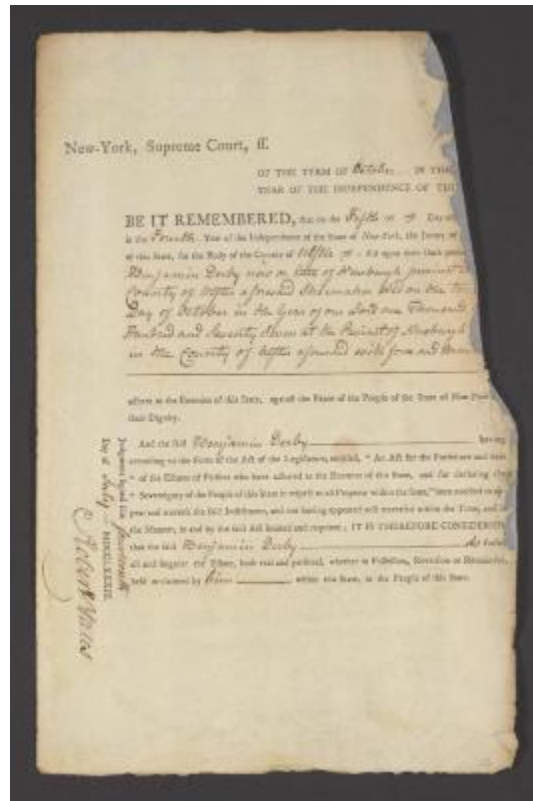 New-York, Supreme Court, ss.
OF THE TERM OF October IN THE
YEAR OF THE INDEPENDENCE OF THE
BE IT REMEMBERED, that on the Fifth Day of
in the Fourth Year of the Independence of the State of New-York, the Jurors of
of this State, for the Body of the County of Ulster did upon their
Benjamin Derby now or late of Newburgh precinct
County of Ulster aforesaid Shoemaker Did on the
Day of October in the Year of our Lord one Thousand
Hundred and Seventy Seven at the Precinct of Newburgh
in the County of Ulster aforesaid with force and
adhere to the Enemies of this State, against the Peace of the People of the State of New-York
their Dignity.
And the said Benjamin Derby having
according to the Form of the Act of the Legislature, entitled, " An Act for the Forfeiture and Sale
" of the Estates of Persons who have adhered to the Enemies of this State, and for declaring the
" Sovereignty of the People of this State in respect to all Property within the State," been notified to
pear and traverse the said Indictment, and not having appeared and traversed within the Time, and in
the Manner, in and by the said Act limited and required; IT IS THEREFORE CONSIDERED
that the said Benjamin Derby do
all and singular the Estate, both real and personal, whether in Possession, Reversion or Remainder,
held or claimed by him within this State, to the People of this State.
Judgment signed this fourteenth
Day of July MDCCLXXXIII.
Robert Yates